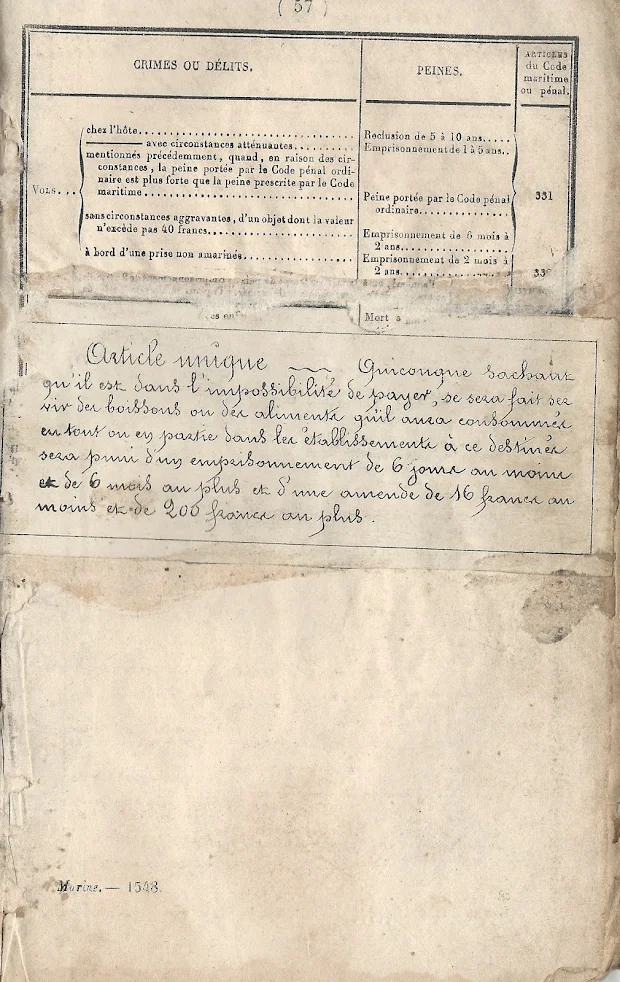 ( 57 )
CRIMES OU DÉLITS.
PEINES.
ARTICLES
du Code
maritime
ou pénal.
Vols...
chez l'hôte
Reclusion de 5 à 10 ans
avec circonstances atténuantes
Emprisonnement de 1 à 5 ans
mentionnés précédemment, quand, en raison des cir-
constances, la peine portée par le Code pénal ordi-
naire est plus forte que la peine prescrite par le Code
maritime
Peine portée par le Code pénal
ordinaire
331
sans circonstances aggravantes, d'un objet dont la valeur
n'excède pas 40 francs
Emprisonnement de 6 mois à
2 ans
à bord d'une prise non amarinée
Emprisonnement de 2 mois à
2 ans
Mort
Article unique — Quiconque sachant
qu'il est dans l'impossibilité de payer, se sera fait ser
vir des boissons ou des aliments qu'il aura consommés
en tout ou en partie dans les établissements à ce destinés
sera puni d'un emprisonnement de 6 jours au moins
et de 6 mois au plus et d'une amende de 16 francs au
moins et de 200 francs au plus.
Marine. — 1548.